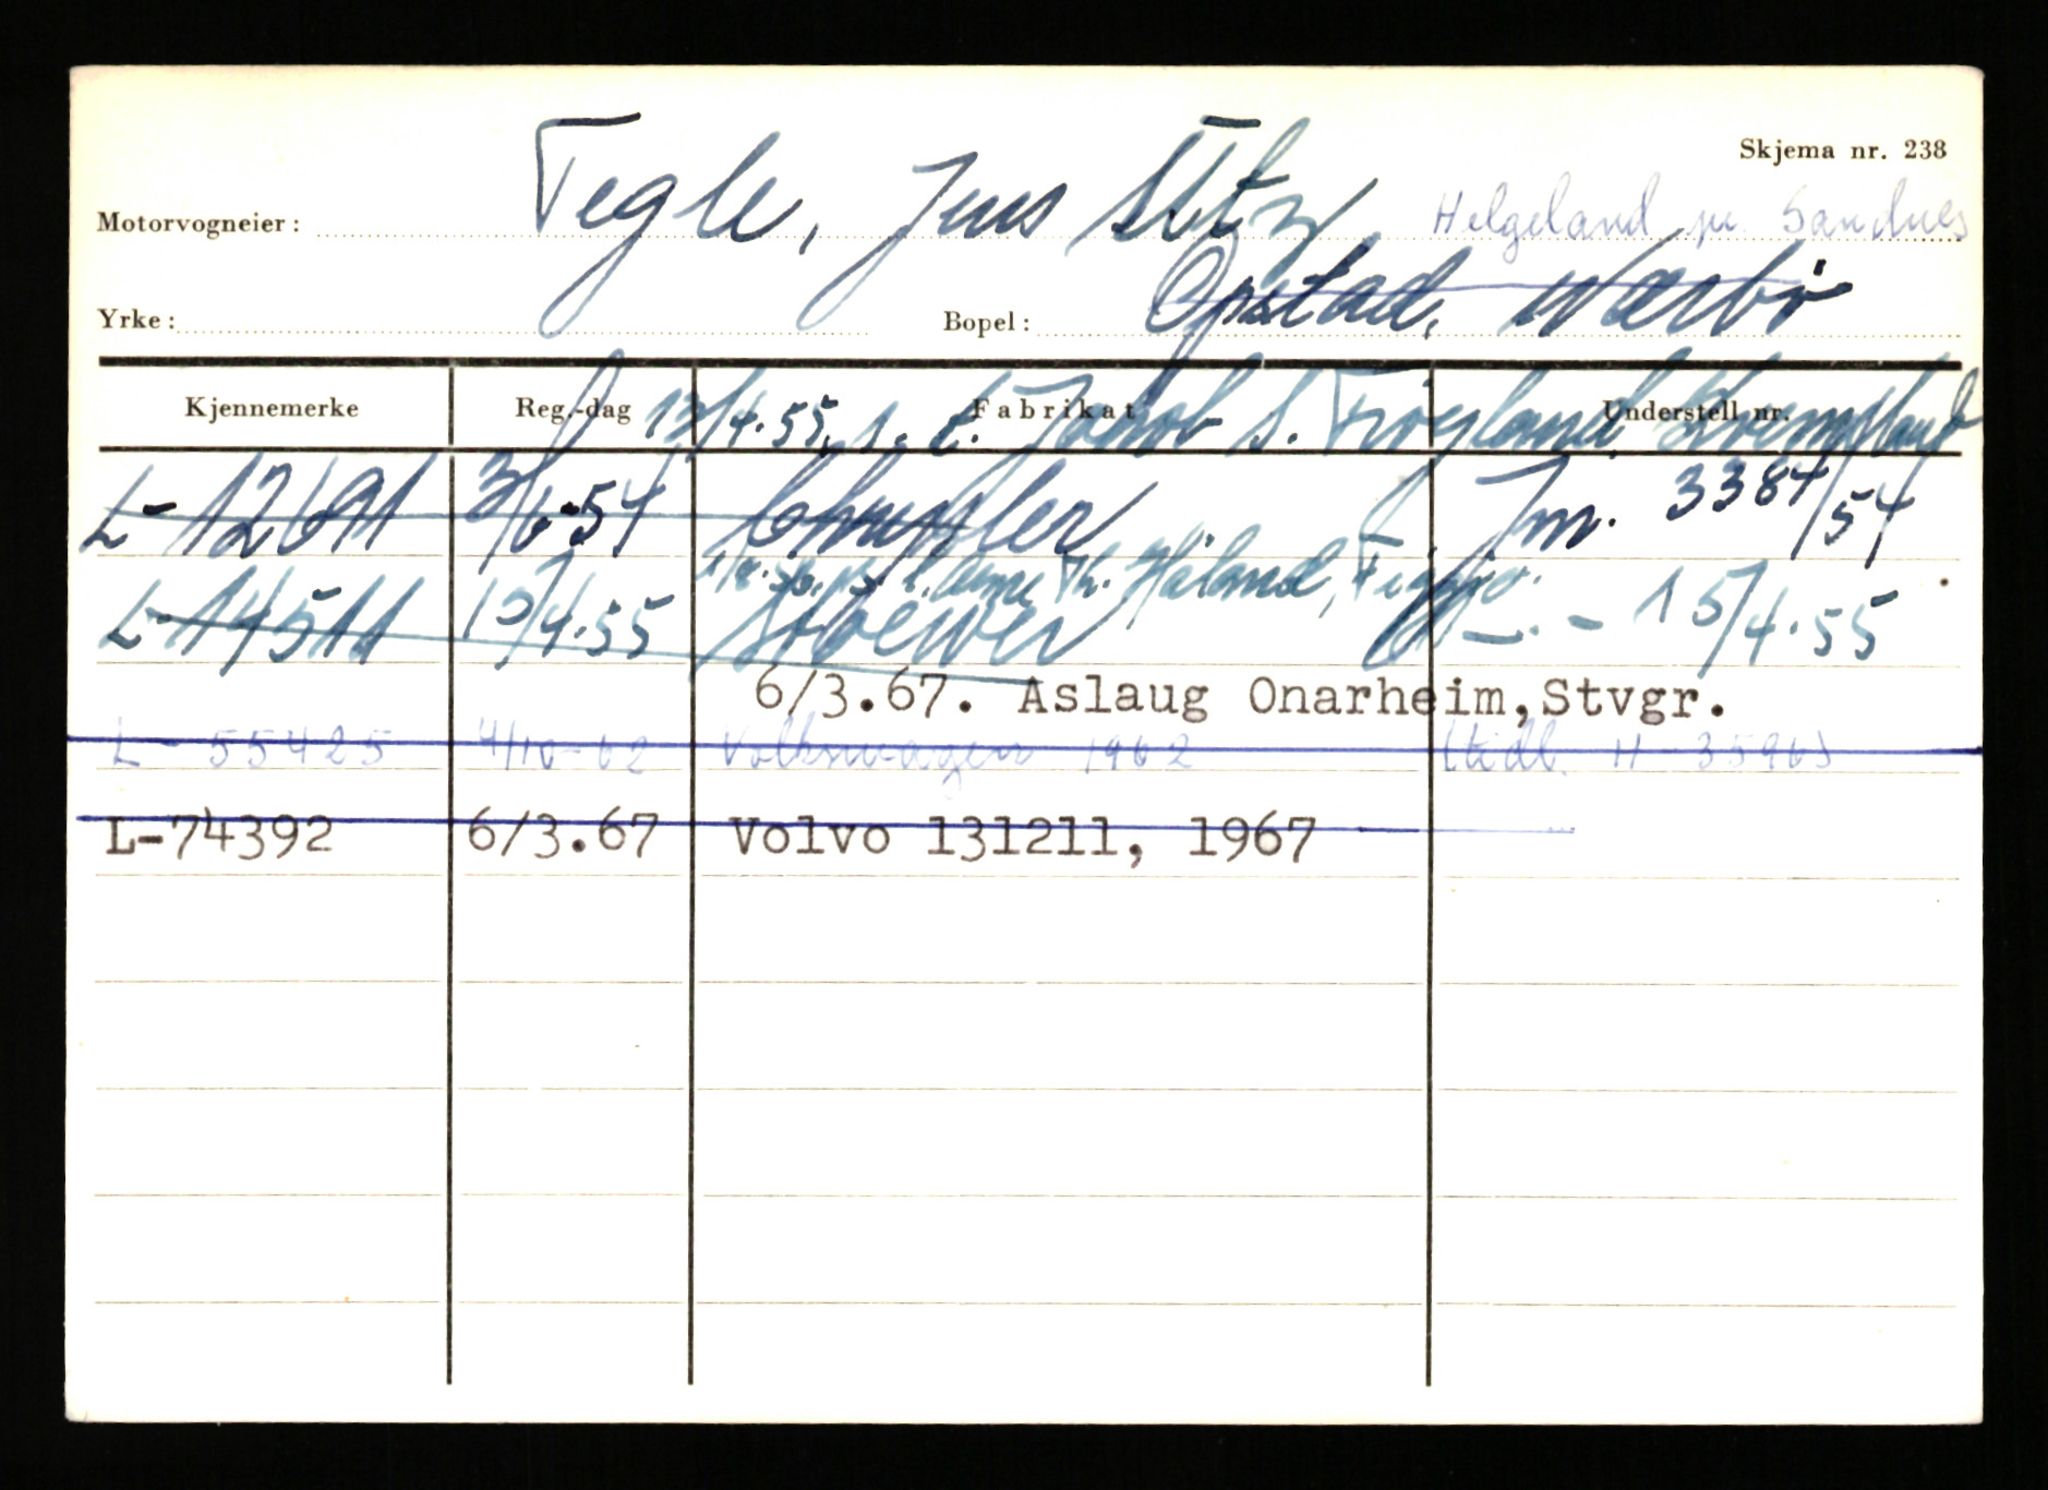 Skjema nr. 238
Motorvogneier: Tegle, Jens Helgeland pr. Sandnes
Yrke: Bopel: Opstad, Nærbø
Kjennemerke Reg.-dag Fabrikat Understell nr.
13/4.55, s. t. Jakob S.
L-12691 3/6-54 Chrysler Jm. 3384/54
Th. Håland,
L-14511 15/4.55 Stoewer — . - 15/4.55
6/3.67. Aslaug Onarheim,Stvgr.
L-55425 4/10-62 Volkswagen 1962 (tidl. H-35965
L-74392 6/3.67 Volvo 131211, 1967